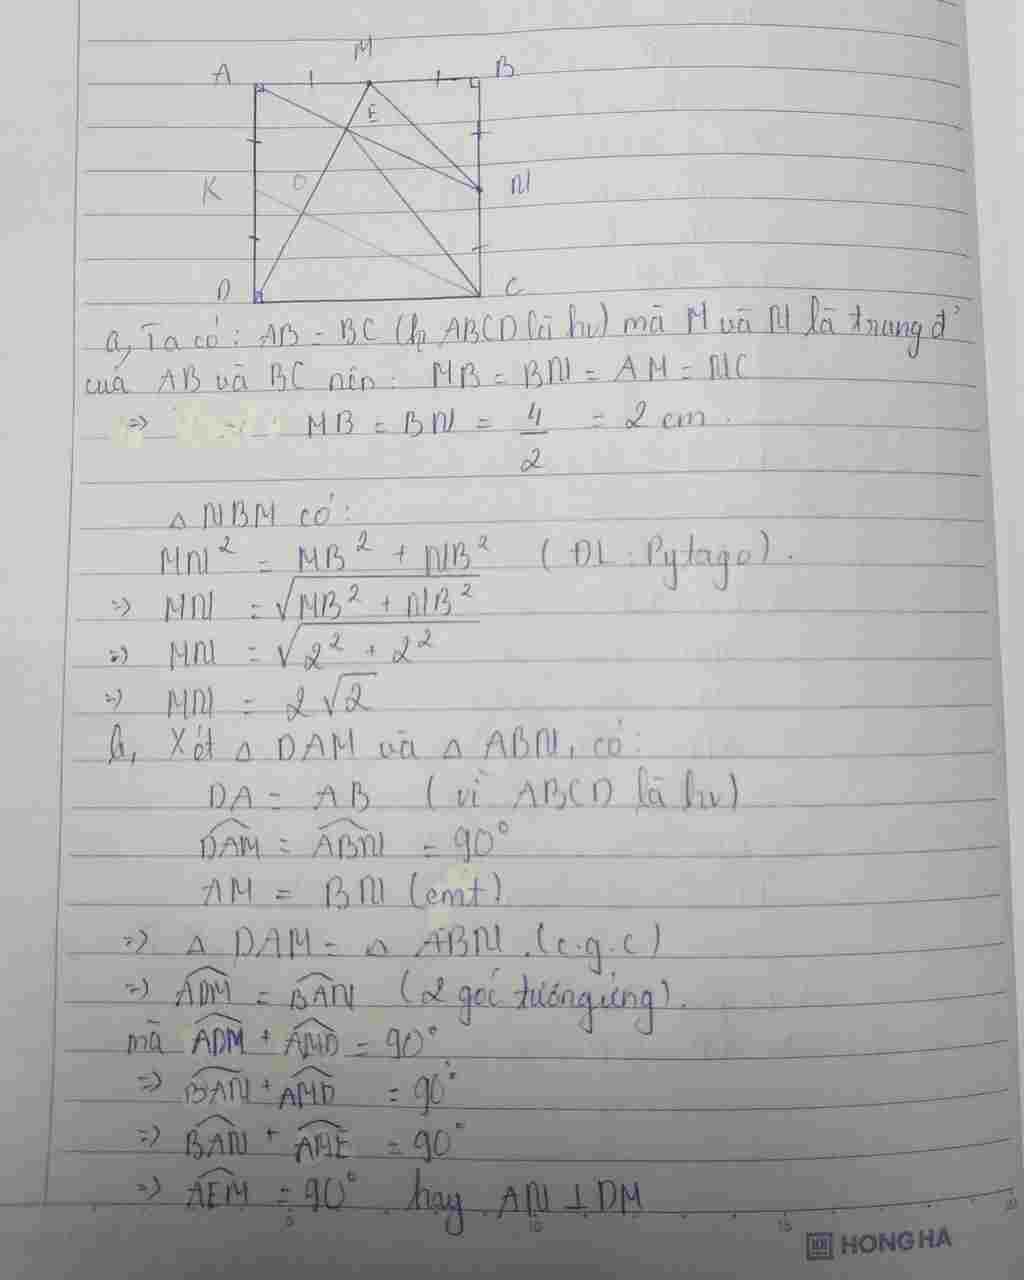 M
A
B
E
K
O
N
D
C
a, Ta có: AB = BC (h ABCD là hv) mà M và N là trung đ'
của AB và BC nên: MB = BN = AM = NC
=> MB = BN = 4/2 = 2 cm.
△ NBM có:
MN² = MB² + NB² (ĐL: Pytago).
=> MN = √MB² + NB²
=> MN = √2² + 2²
=> MN = 2√2
b, Xét △ DAM và △ ABN, có:
DA = AB (vì ABCD là hv)
DAM = ABN = 90°
AM = BN (cmt)
=> △ DAM = △ ABN (c.g.c)
=> ADM = BAN (2 góc tương ứng).
mà ADM + AMD = 90°
=> BAN + AMD = 90°
=> BAN + AME = 90°
=> AEM = 90° hay AN ⊥ DM
5 10 15 20
HONG HA